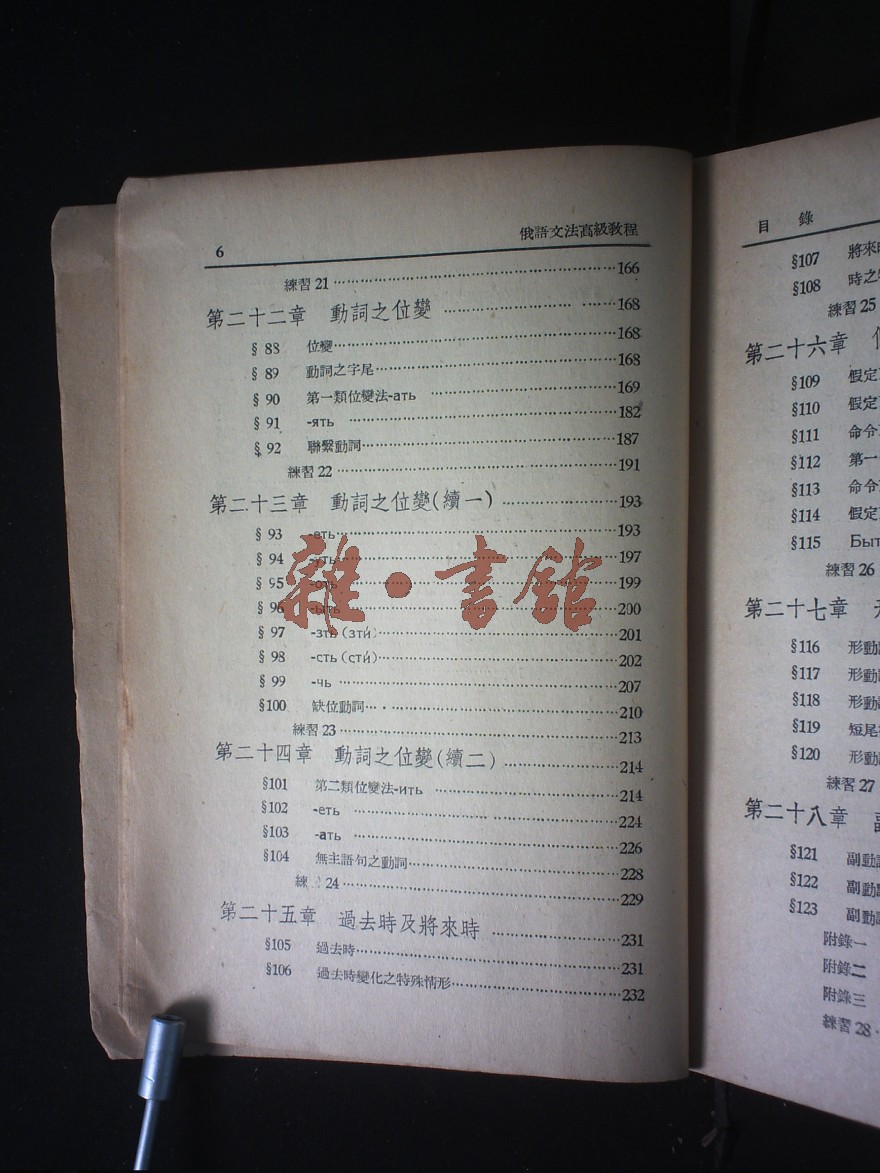 6 俄語文法高級敎程
練習 21 ……… 166
第二十二章 動詞之位變 ……… 168
§ 88 位變 ……… 168
§ 89 動詞之字尾 ……… 168
§ 90 第一類位變法-ать ……… 169
§ 91 -ять ……… 182
§ 92 聯繫動詞 ……… 187
練習 22 ……… 191
第二十三章 動詞之位變(續一) ……… 193
§ 93 -еть ……… 193
§ 94 -уть ……… 197
§ 95 -оть ……… 199
§ 96 -ыть ……… 200
§ 97 -зть (зти́) ……… 201
§ 98 -сть (сти́) ……… 202
§ 99 -чь ……… 207
§100 缺位動詞 ……… 210
練習 23 ……… 213
第二十四章 動詞之位變(續二) ……… 214
§101 第二類位變法-ить ……… 214
§102 -еть ……… 224
§103 -ать ……… 226
§104 無主語句之動詞 ……… 228
練 24 ……… 229
第二十五章 過去時及將來時 ……… 231
§105 過去時 ……… 231
§106 過去時變化之特殊情形 ……… 232
雜·書館
目錄
§107 將來
§108 時之
練習 25
第二十六章
§109 假定
§110 假定
§111 命令
§112 第一
§113 命令
§114 假定
§115 Быт
練習 26
第二十七章
§116 形動
§117 形動
§118 形動
§119 短尾
§120 形動
練習 27
第二十八章
§121 副動
§122 副動
§123 副動
附錄一
附錄二
附錄三
練習 28